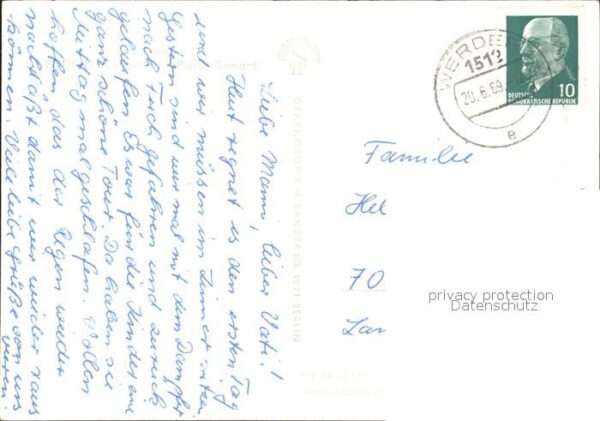 Liebe Mami, lieber Vati!
Heut regnet es den ersten Tag
und wir müssen im Zimmer sitzen.
Gestern sind wir mal mit dem Dampfer
nach gefahren und zurück
gelaufen. Es war für die Kinder eine
ganz schöne Tour. Da haben sie
Mittag mal geschlafen. Wollen
hoffen, das der Regen wieder
nachläßt damit wir wieder raus
können. Viele liebe Grüße von uns
vieren.
WERDER
1512
20.6.69
e
10
DEUTSCHE
DEMOKRATISCHE REPUBLIK
Familie
Hel
70
Lan
privacy protection
Datenschutz
1071 BERLIN